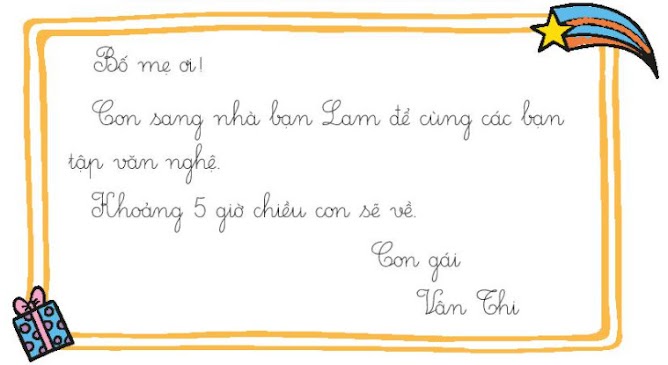 Bố mẹ ơi!
Con sang nhà bạn Lam để cùng các bạn
tập văn nghệ.
Khoảng 5 giờ chiều con sẽ về.
Con gái
Vân Thi